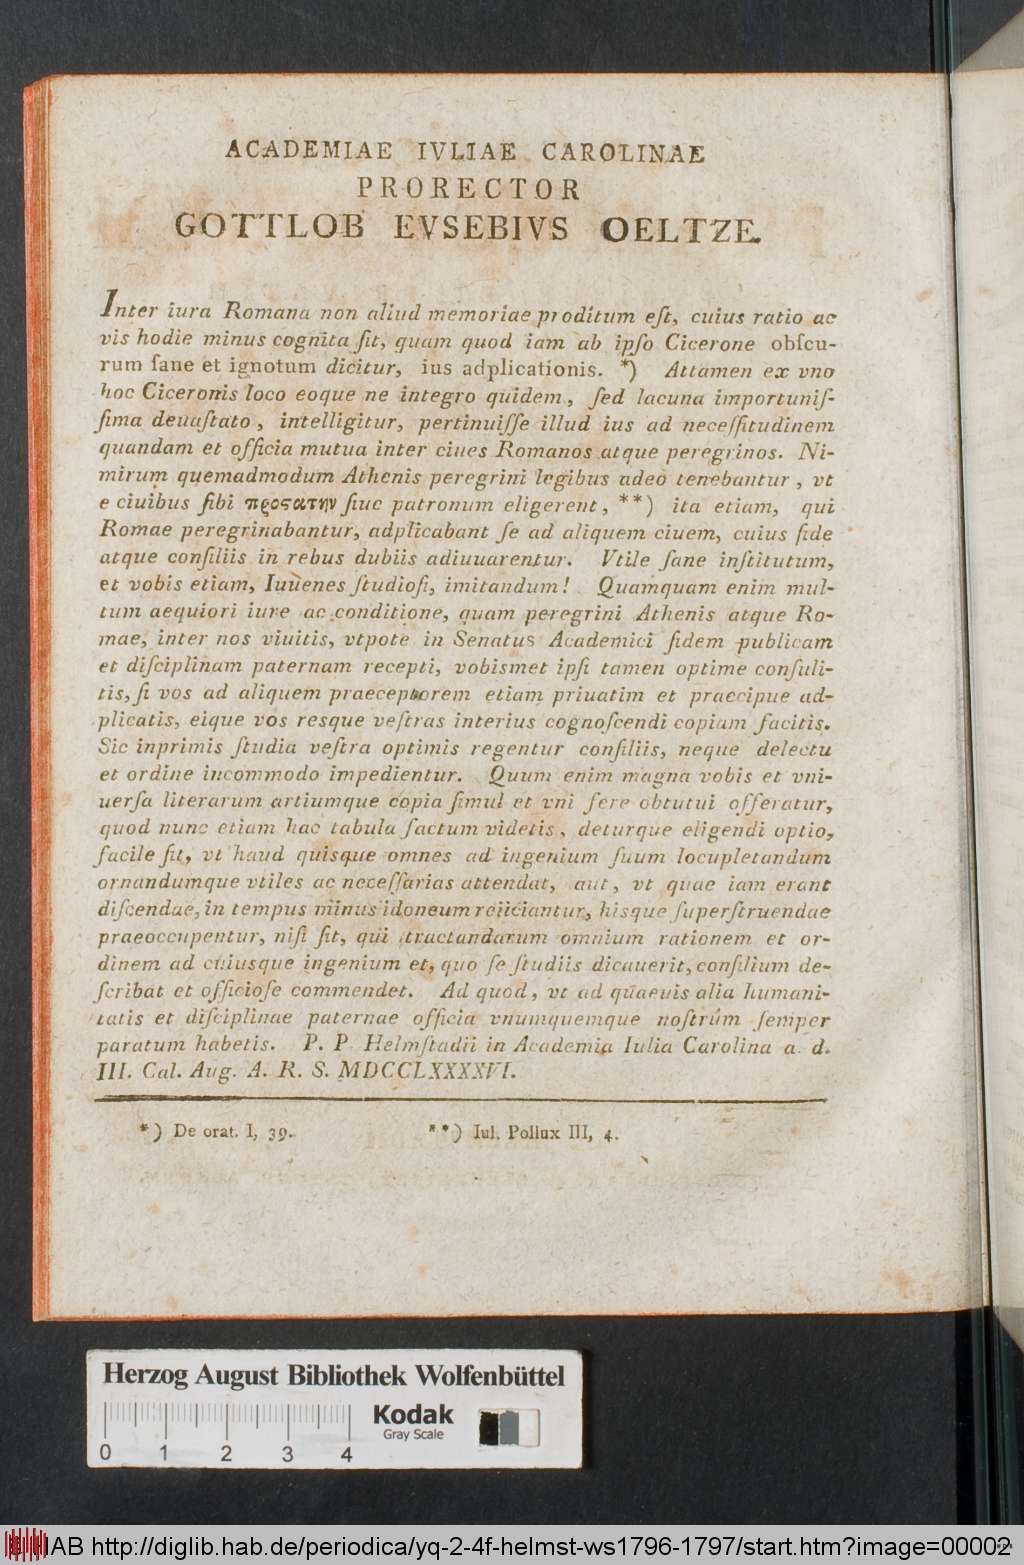 ACADEMIAE IVLIAE CAROLINAE
PRORECTOR
GOTTLOB EVSEBIVS OELTZE.
Inter iura Romana non aliud memoriae proditum eſt, cuius ratio ac
vis hodie minus cognita ſit, quam quod iam ab ipſo Cicerone obſcu-
rum ſane et ignotum dicitur, ius adplicationis. *) Attamen ex vno
hoc Ciceronis loco eoque ne integro quidem, ſed lacuna importuniſ-
ſima deuaſtato, intelligitur, pertinuiſſe illud ius ad neceſſitudinem
quandam et officia mutua inter ciues Romanos atque peregrinos. Ni-
mirum quemadmodum Athenis peregrini legibus adeo tenebantur, vt
e ciuibus ſibi προϛατην ſiue patronum eligerent, **) ita etiam, qui
Romae peregrinabantur, adplicabant ſe ad aliquem ciuem, cuius fide
atque conſiliis in rebus dubiis adiuuarentur. Vtile ſane inſtitutum,
et vobis etiam, Iuuenes ſtudioſi, imitandum! Quamquam enim mul-
tum aequiori iure ac conditione, quam peregrini Athenis atque Ro-
mae, inter nos viuitis, vtpote in Senatus Academici fidem publicam
et diſciplinam paternam recepti, vobismet ipſi tamen optime conſuli-
tis, ſi vos ad aliquem praeceptorem etiam priuatim et praecipue ad-
plicatis, eique vos resque veſtras interius cognoſcendi copiam facitis.
Sic inprimis ſtudia veſtra optimis regentur conſiliis, neque delectu
et ordine incommodo impedientur. Quum enim magna vobis et vni-
uerſa literarum artiumque copia ſimul et vni fere obtutui offeratur,
quod nunc etiam hac tabula factum videtis, deturque eligendi optio,
facile fit, vt haud quisque omnes ad ingenium ſuum locupletandum
ornandumque vtiles ac neceſſarias attendat, aut, vt quae iam erant
diſcendae, in tempus minus idoneum reiiciantur, hisque ſuperſtruendae
praeoccupentur, niſi ſit, qui tractandarum omnium rationem et or-
dinem ad cuiusque ingenium et, quo ſe ſtudiis dicauerit, conſilium de-
ſcribat et officioſe commendet. Ad quod, vt ad quaeuis alia humani-
tatis et diſciplinae paternae officia vnumquemque noſtrûm ſemper
paratum habetis. P. P. Helmſtadii in Academia Iulia Carolina a. d.
III. Cal. Aug. A. R. S. MDCCLXXXXVI.
*) De orat. I, 39.
**) Iul. Pollux III, 4.
Herzog August Bibliothek Wolfenbüttel
Kodak
Gray Scale
0 1 2 3 4
HAB http://diglib.hab.de/periodica/yq-2-4f-helmst-ws1796-1797/start.htm?image=00002